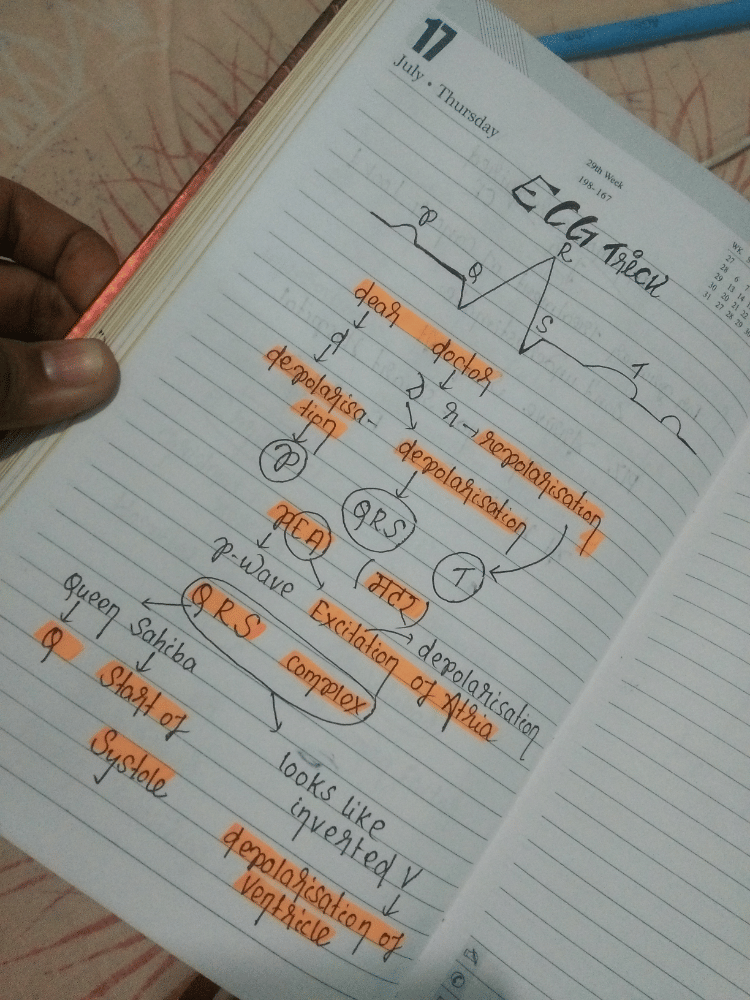 17
July • Thursday
29th Week
198-167
ECG Trick
P
Q
R
S
T
dear doctor
d
r → repolarisation
depolarisa-
tion
depolarisation
P
QRS
T
PEA
p-wave
Excitation of Atria
depolarisation
QRS
complex
Queen Sahiba
Q
Start of
Systole
looks like
inverted V
depolarisation of
ventricle